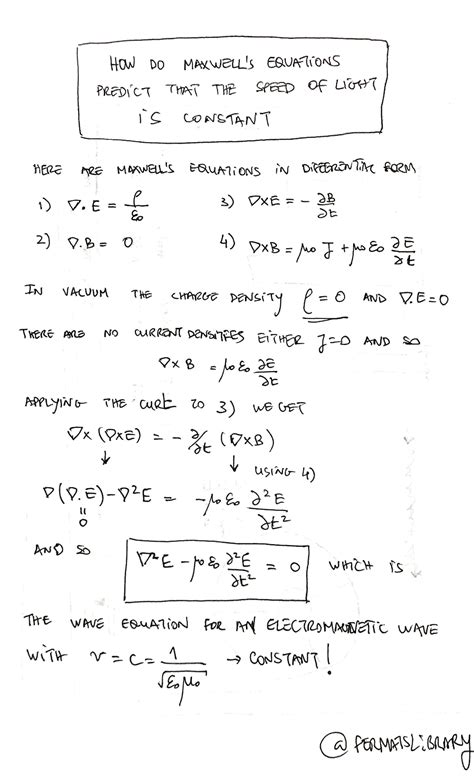 HOW DO MAXWELL'S EQUATIONS
PREDICT THAT THE SPEED OF LIGHT
IS CONSTANT
HERE ARE MAXWELL'S EQUATIONS IN DIFFERENTIAL FORM
1) ∇.E = ρ/ε₀ 3) ∇×E = - ∂B/∂t
2) ∇.B = 0 4) ∇×B = μ₀ J + μ₀ε₀ ∂E/∂t
IN VACUUM THE CHARGE DENSITY ρ = 0 AND ∇.E=0
THERE ARE NO CURRENT DENSITIES EITHER J=0 AND SO
∇× B = μ₀ ε₀ ∂E/∂t
APPLYING THE CURL TO 3) WE GET
∇× (∇×E) = - ∂/∂t (∇×B)
↓ ↓ USING 4)
∇(∇.E) - ∇²E = -μ₀ε₀ ∂²E/∂t²
=
0
AND SO ∇²E - μ₀ε₀ ∂²E/∂t² = 0 WHICH IS
THE WAVE EQUATION FOR AN ELECTROMAGNETIC WAVE
WITH v = c = 1/√ε₀μ₀ → CONSTANT!
@FERMATSLIBRARY